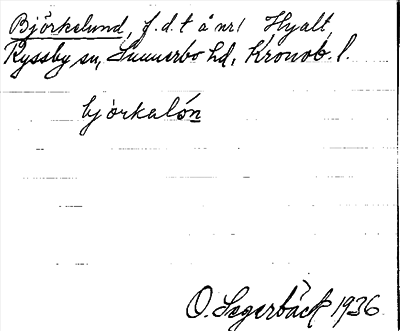 Björkelund, f.d.t å nr 1 Hyalt,
Ryssby sn, Sunnerbo hd, Kronob. l.
bjòrkalón
O. Segerbäck 1936